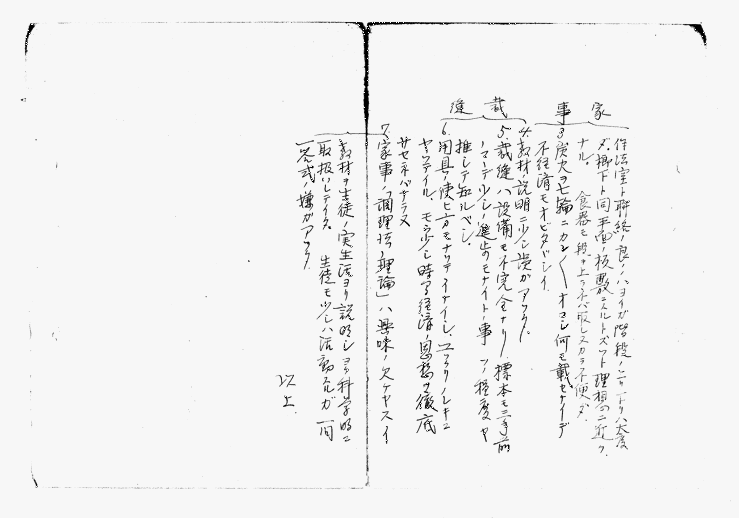 家事
作法室ト聯絡ノ良イノハヨイガ階段ノ上リ下リハ大変
ダ。廊下ト同平面ノ板敷ニスルトズット理想ニ近ク
ナル。 食器モ段ヲ上ラネバ取レヌカラ不便ダ
3.炭火ヲ七輪ニカン〳〵オコシ何モ載セナイデ
不経済モオビタダシイ
裁縫
4.教材ノ説明ニ少シ誤ガアツタ。
5.裁縫ハ設備モ不完全ナリ 標本モ三年前
ノマーデ少シノ進歩ノモナイトノ事 ソノ程度ヤ
推シテ知ルベシ。
6.用具ノ使ヒ方モナツテイナイシ、ユツクリノレキニ
ヤツテイル、モ少シ時ヲ経済ノ思想ヲ徹底
サセネバナラヌ
7.家事ノ「調理法ノ理論」ハ興味ノ欠ケヤスイ
教材ヲ生徒ノ実生活ヨリ説明シヨク科学的ニ
取扱ハレテイタ。 生徒モ少シハ活動スルガ 一問
一答式ノ嫌ガアツタ
以上.